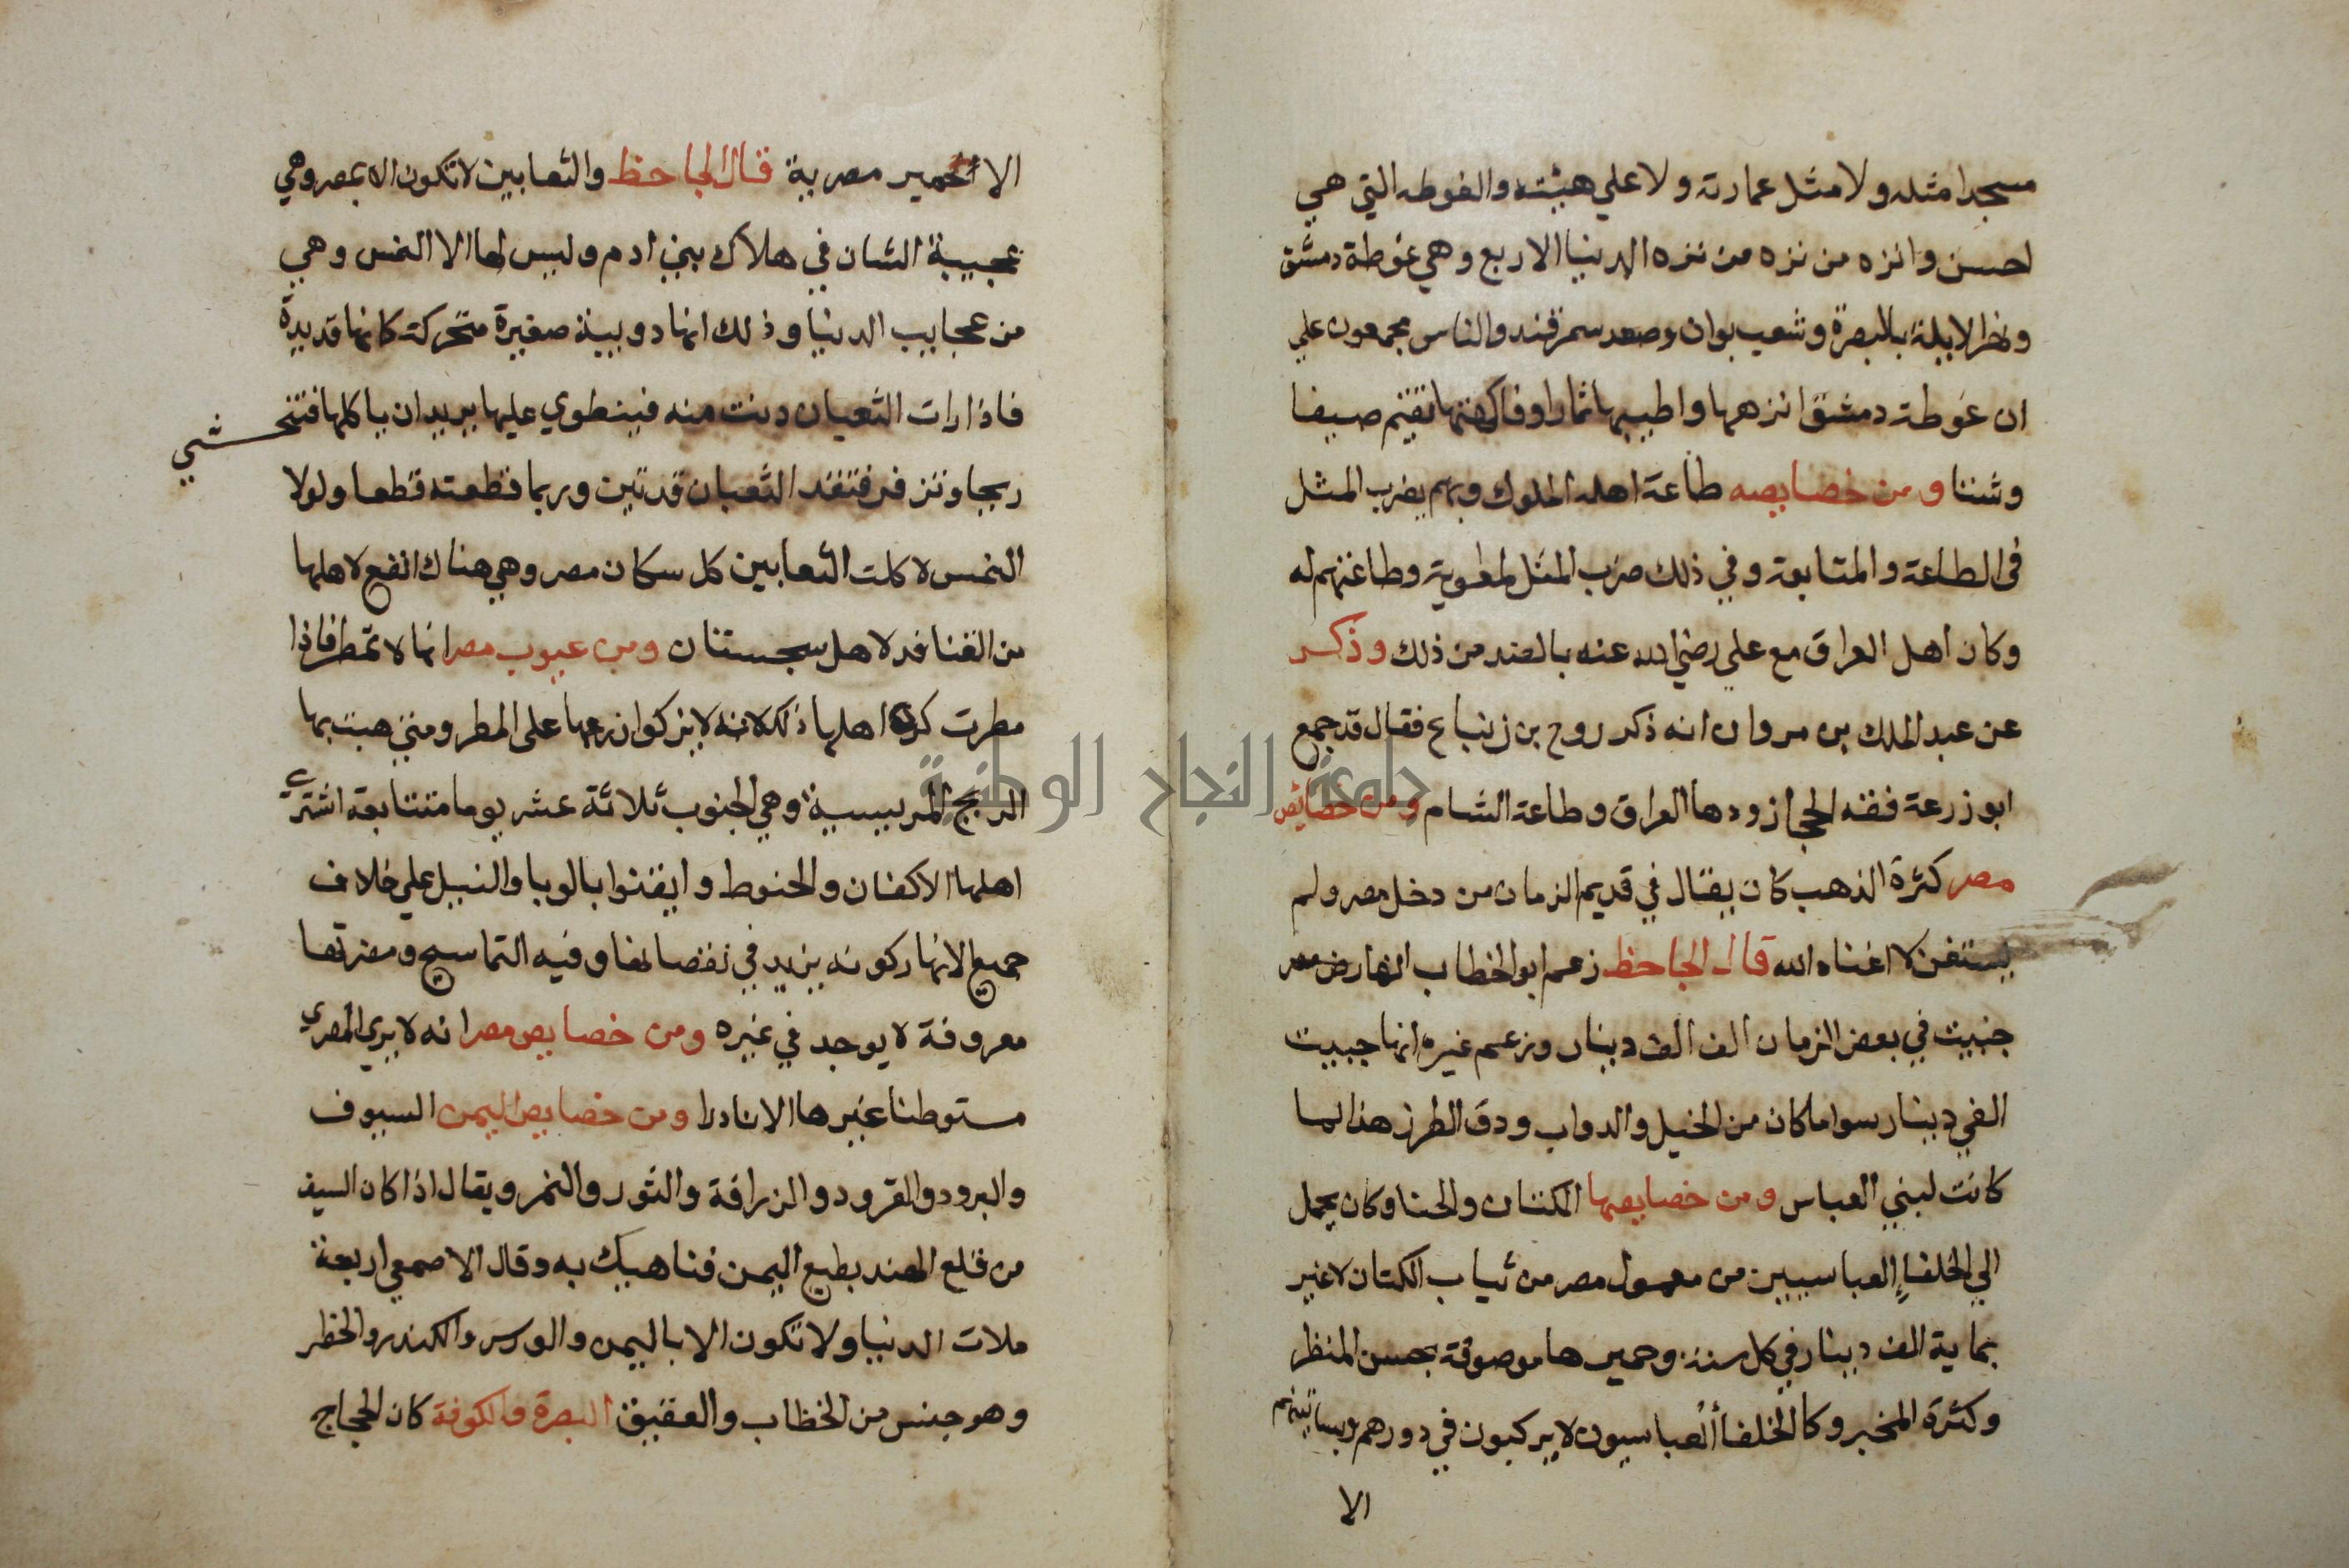 مسجدا مثله ولا مثل عمارته ولا علي هيئته والغوطه التي هي
احسن وانزه من نزه من نزه الدنيا الاربع وهي غوطة دمشق
ونهر الابلة بالبصرة وشعب بوان وصعد سمرقند والناس مجمعون علي
ان غوطة دمشق انزهها واطيبها ثمارا وفاكهتها تقيم صيفا
وشتا ومن خصايصه طاعة اهله الملوك وبهم يضرب المثل
في الطاعة والمتابعة وفي ذلك ضرب المثل لمعوية وطاعتهم له
وكان اهل العراق مع علي رضي الله عنه بالضد من ذلك وذكر
عن عبد الملك بن مروان انه ذكر روح بن زنباع فقال قد جمع
ابو زرعة فقه الحجاز ودها العراق وطاعة الشام ومن خصائص
مصر كثرة الذهب كان يقال في قديم الزمان من دخل مصر ولم
يستغن لا اغناه الله قال الجاحظ زعم ابو الخطاب ان ارض مصر
جنيت في بعض الزمان الف الف دينار وزعم غيره انها جبيت
الفي دينار سوا ما كان من الخيل والدواب ودق الطرز هذا لما
كانت لبني العباس ومن خصايصها الكتان والحنا وكان يحمل
الي الخلفاء العباسيين من معمول مصر من ثياب الكتان لا غير
بماية الف دينار في كل سنة وحميرها موصوفة بحسن المنظر
وكثرة المخبر وكا الخلفا العباسيون لا يركبون في دورهم وبساتينهم
الا
الا الحمير مصرية قال الجاحظ والثعابين لا تكون الا بمصر وهي
عجيبة الشان في هلاك بني ادم وليس لها الا النمس وهي
من عجايب الدنيا وذلك انها دويبة صغيرة متحركة كانها قديدة
فاذا رات الثعبان دنت منه فينطوي عليها يريد ان ياكلها فتحشي
ريحا وتزفر فتقد الثعبان قدتين وربما قطعته قطعا ولولا
النمس لاكلت الثعابين كل سكان مصر وهي هناك انفع لاهلها
من القنافد لاهل سجستان ومن عيوب مصر انها لا تمطر فاذا
مطرت كره اهلها ذلك لانه لا يزكوا زرعها على المطر ومتي هبت بها
الريح المريسية وهي الجنوب ثلاثة عشر يوما متتابعة اشتري
اهلها الاكفان والحنوط وايقنوا بالوبا والنيل علي خلاف
جميع الانهار كونه يزيد في نقصانها وفيه التماسيح ومضرتها
معروفة لا يوجد في غيره ومن خصايص مصر انه لا يري المصري
مستوطنا غيرها الا نادرا ومن خصايص اليمن السيوف
والبرود والقرود والزرافة والثور والنمر ويقال اذا كان السيف
من قلع الهند بطبع اليمن فناهيك به وقال الاصمعي اربعة
ملات الدنيا ولا تكون الا باليمن والورس والكندر والخطر
وهو جنس من الخظاب والعقيق البصرة والكوفة كان الحجاج
جامعة النجاح الوطنية